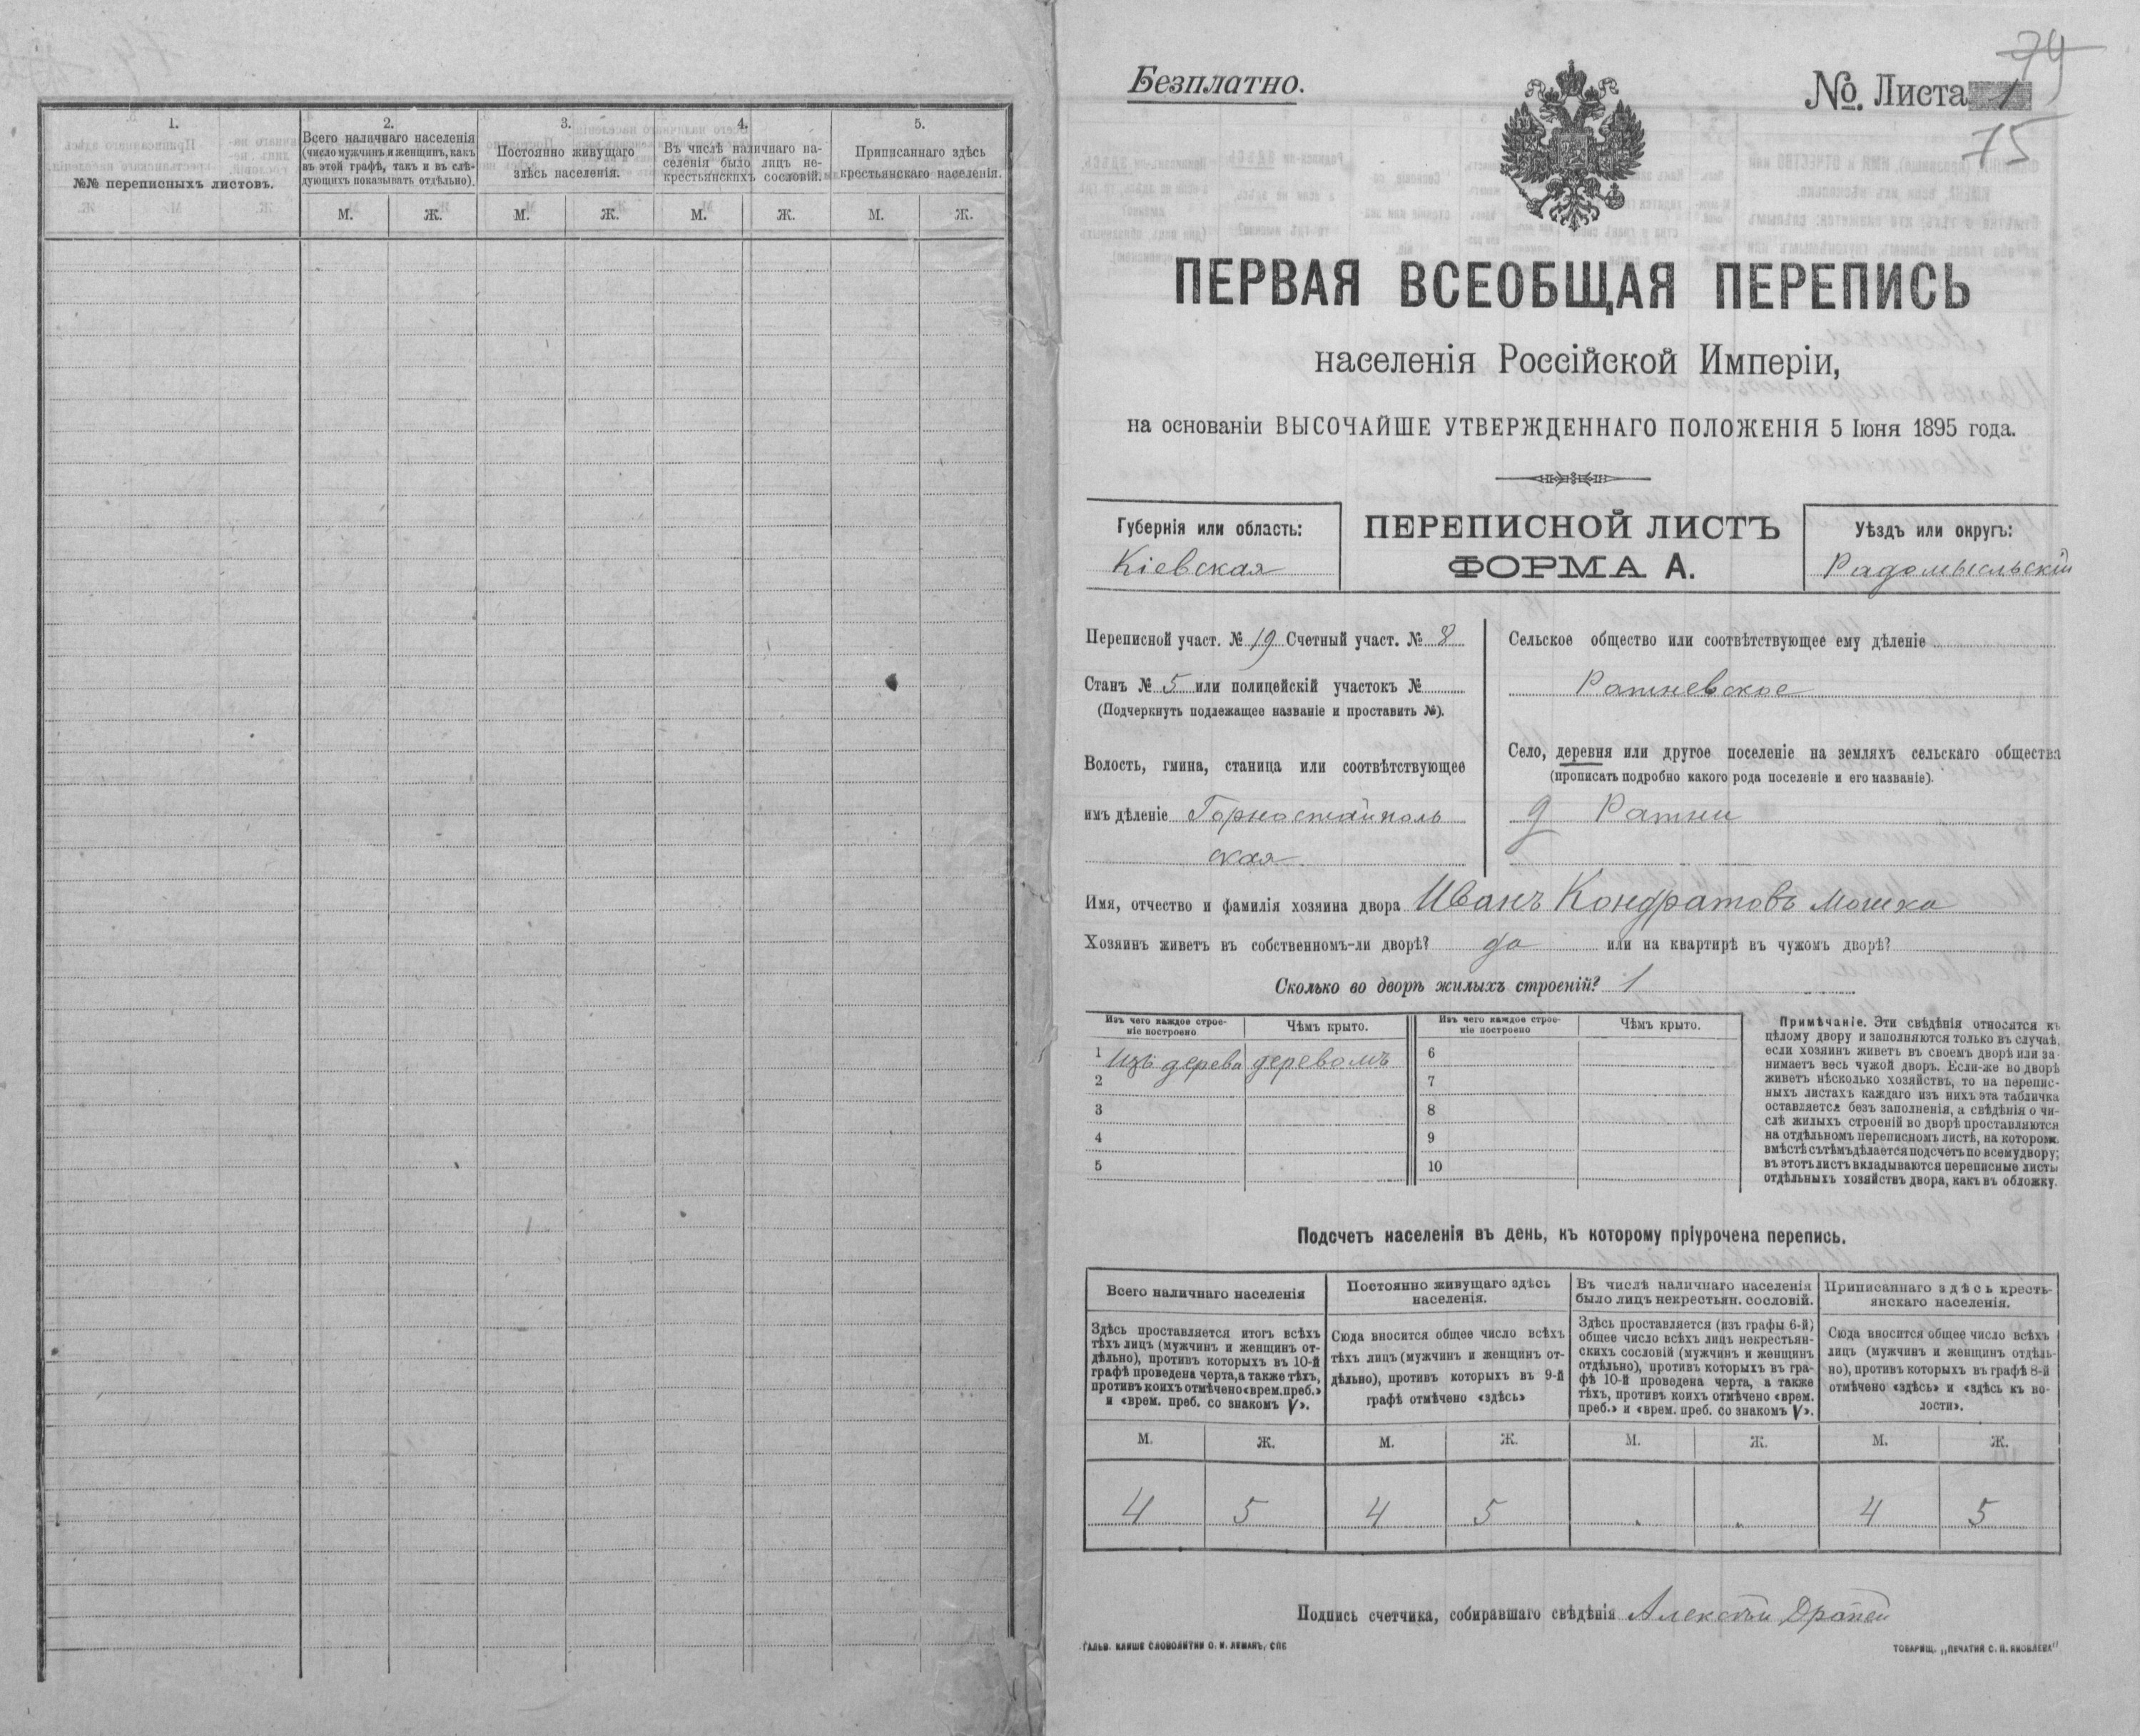 1.
№№ переписныхъ листовъ.
2.
Всего наличнаго населенія
(число мужчинъ и женщинъ, какъ
въ этой графѣ, такъ и въ слѣ-
дующихъ показывать отдѣльно).
3.
Постоянно живущаго
здѣсь населенія.
4.
Въ числѣ наличнаго на-
селенія было лицъ не-
крестьянскихъ сословій.
5.
Приписаннаго здѣсь
крестьянскаго населенія.
М. Ж. М. Ж. М. Ж. М. Ж.
Безплатно.
№. Листа 1
74
75
ПЕРВАЯ ВСЕОБЩАЯ ПЕРЕПИСЬ
населенія Россійской Имперіи,
на основаніи ВЫСОЧАЙШЕ УТВЕРЖДЕННАГО ПОЛОЖЕНІЯ 5 Іюня 1895 года.
Губернія или область:
Кіевская
ПЕРЕПИСНОЙ ЛИСТЪ
ФОРМА А.
Уѣздъ или округъ:
Радомысльскій
Переписной участ. № 19 Счетный участ. № 8
Станъ № 5 или полицейскій участокъ №
(Подчеркнуть подлежащее названіе и проставить №).
Волость, гмина, станица или соотвѣтствующее
имъ дѣленіе Горностайполь
ская
Сельское общество или соотвѣтствующее ему дѣленіе
Ратневское
Село, деревня или другое поселеніе на земляхъ сельскаго общества
(прописать подробно какого рода поселеніе и его названіе).
д Ратни
Имя, отчество и фамилія хозяина двора Иванъ Кондратовъ Мошка
Хозяинъ живетъ въ собственномъ-ли дворѣ? да или на квартирѣ въ чужомъ дворѣ?
Сколько во дворѣ жилыхъ строеній? 1
Изъ чего каждое строе-
ніе построено
Чѣмъ крыто.
Изъ чего каждое строе-
ніе построено
Чѣмъ крыто.
1 изъ дерева деревомъ
2
3
4
5
6
7
8
9
10
Примѣчаніе. Эти свѣдѣнія относятся къ
цѣлому двору и заполняются только въ случаѣ,
если хозяинъ живетъ въ своемъ дворѣ или за-
нимаетъ весь чужой дворъ. Если-же во дворѣ
живетъ нѣсколько хозяйствъ, то на перепис-
ныхъ листахъ каждаго изъ нихъ эта табличка
оставляется безъ заполненія, а свѣдѣнія о чи-
слѣ жилыхъ строеній во дворѣ проставляются
на отдѣльномъ переписномъ листѣ, на которомъ
вмѣстѣ съ тѣмъ дѣлается подсчетъ по всему двору;
въ этотъ листъ вкладываются переписные листы
отдѣльныхъ хозяйствъ двора, какъ въ обложку.
Подсчетъ населенія въ день, къ которому пріурочена перепись.
Всего наличнаго населенія
Здѣсь проставляется итогъ всѣхъ
тѣхъ лицъ (мужчинъ и женщинъ от-
дѣльно), противъ которыхъ въ 10-й
графѣ проведена черта, а также тѣхъ,
противъ коихъ отмѣчено «врем. преб.»
и «врем. преб. со знакомъ V».
Постоянно живущаго здѣсь
населенія.
Сюда вносится общее число всѣхъ
тѣхъ лицъ (мужчинъ и женщинъ от-
дѣльно), противъ которыхъ въ 9-й
графѣ отмѣчено «здѣсь»
Въ числѣ наличнаго населенія
было лицъ некрестьян. сословій.
Здѣсь проставляется (изъ графы 6-й)
общее число всѣхъ лицъ некрестьян-
скихъ сословій (мужчинъ и женщинъ
отдѣльно), противъ которыхъ въ гра-
фѣ 10-й проведена черта, а также
тѣхъ, противъ коихъ отмѣчено «врем.
преб.» и «врем. преб. со знакомъ V».
Приписаннаго здѣсь кресть-
янскаго населенія.
Сюда вносится общее число всѣхъ
лицъ (мужчинъ и женщинъ отдѣль-
но), противъ которыхъ въ графѣ 8-й
отмѣчено «здѣсь» и «здѣсь къ во-
лости».
М. Ж. М. Ж. М. Ж. М. Ж.
4 5 4 5 . . 4 5
Подпись счетчика, собиравшаго свѣдѣнія Алексѣй
ГАЛЬВ. КЛИШЕ СЛОВОЛИТНИ О. И. ЛЕМАНЪ, СПБ
ТОВАРИЩ. „ПЕЧАТНЯ С. П. ЯКОВЛЕВА"